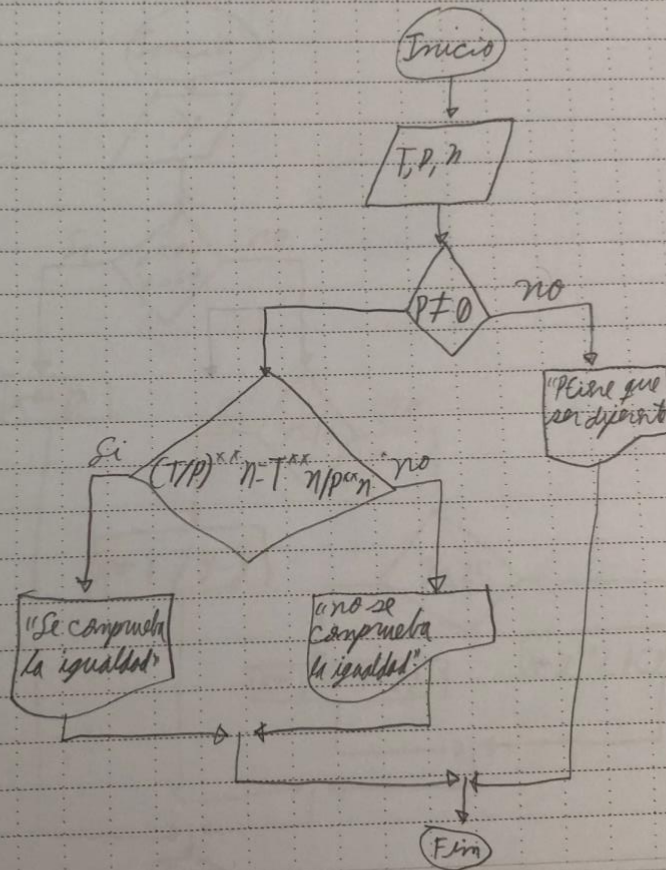 Inicio
T, P, n
P≠0
no
"P tiene que
ser diferent
Si
(T/P)** n = T** n/P** n
no
"Se comprueba
la igualdad"
"no se
comprueba
la igualdad"
Fin